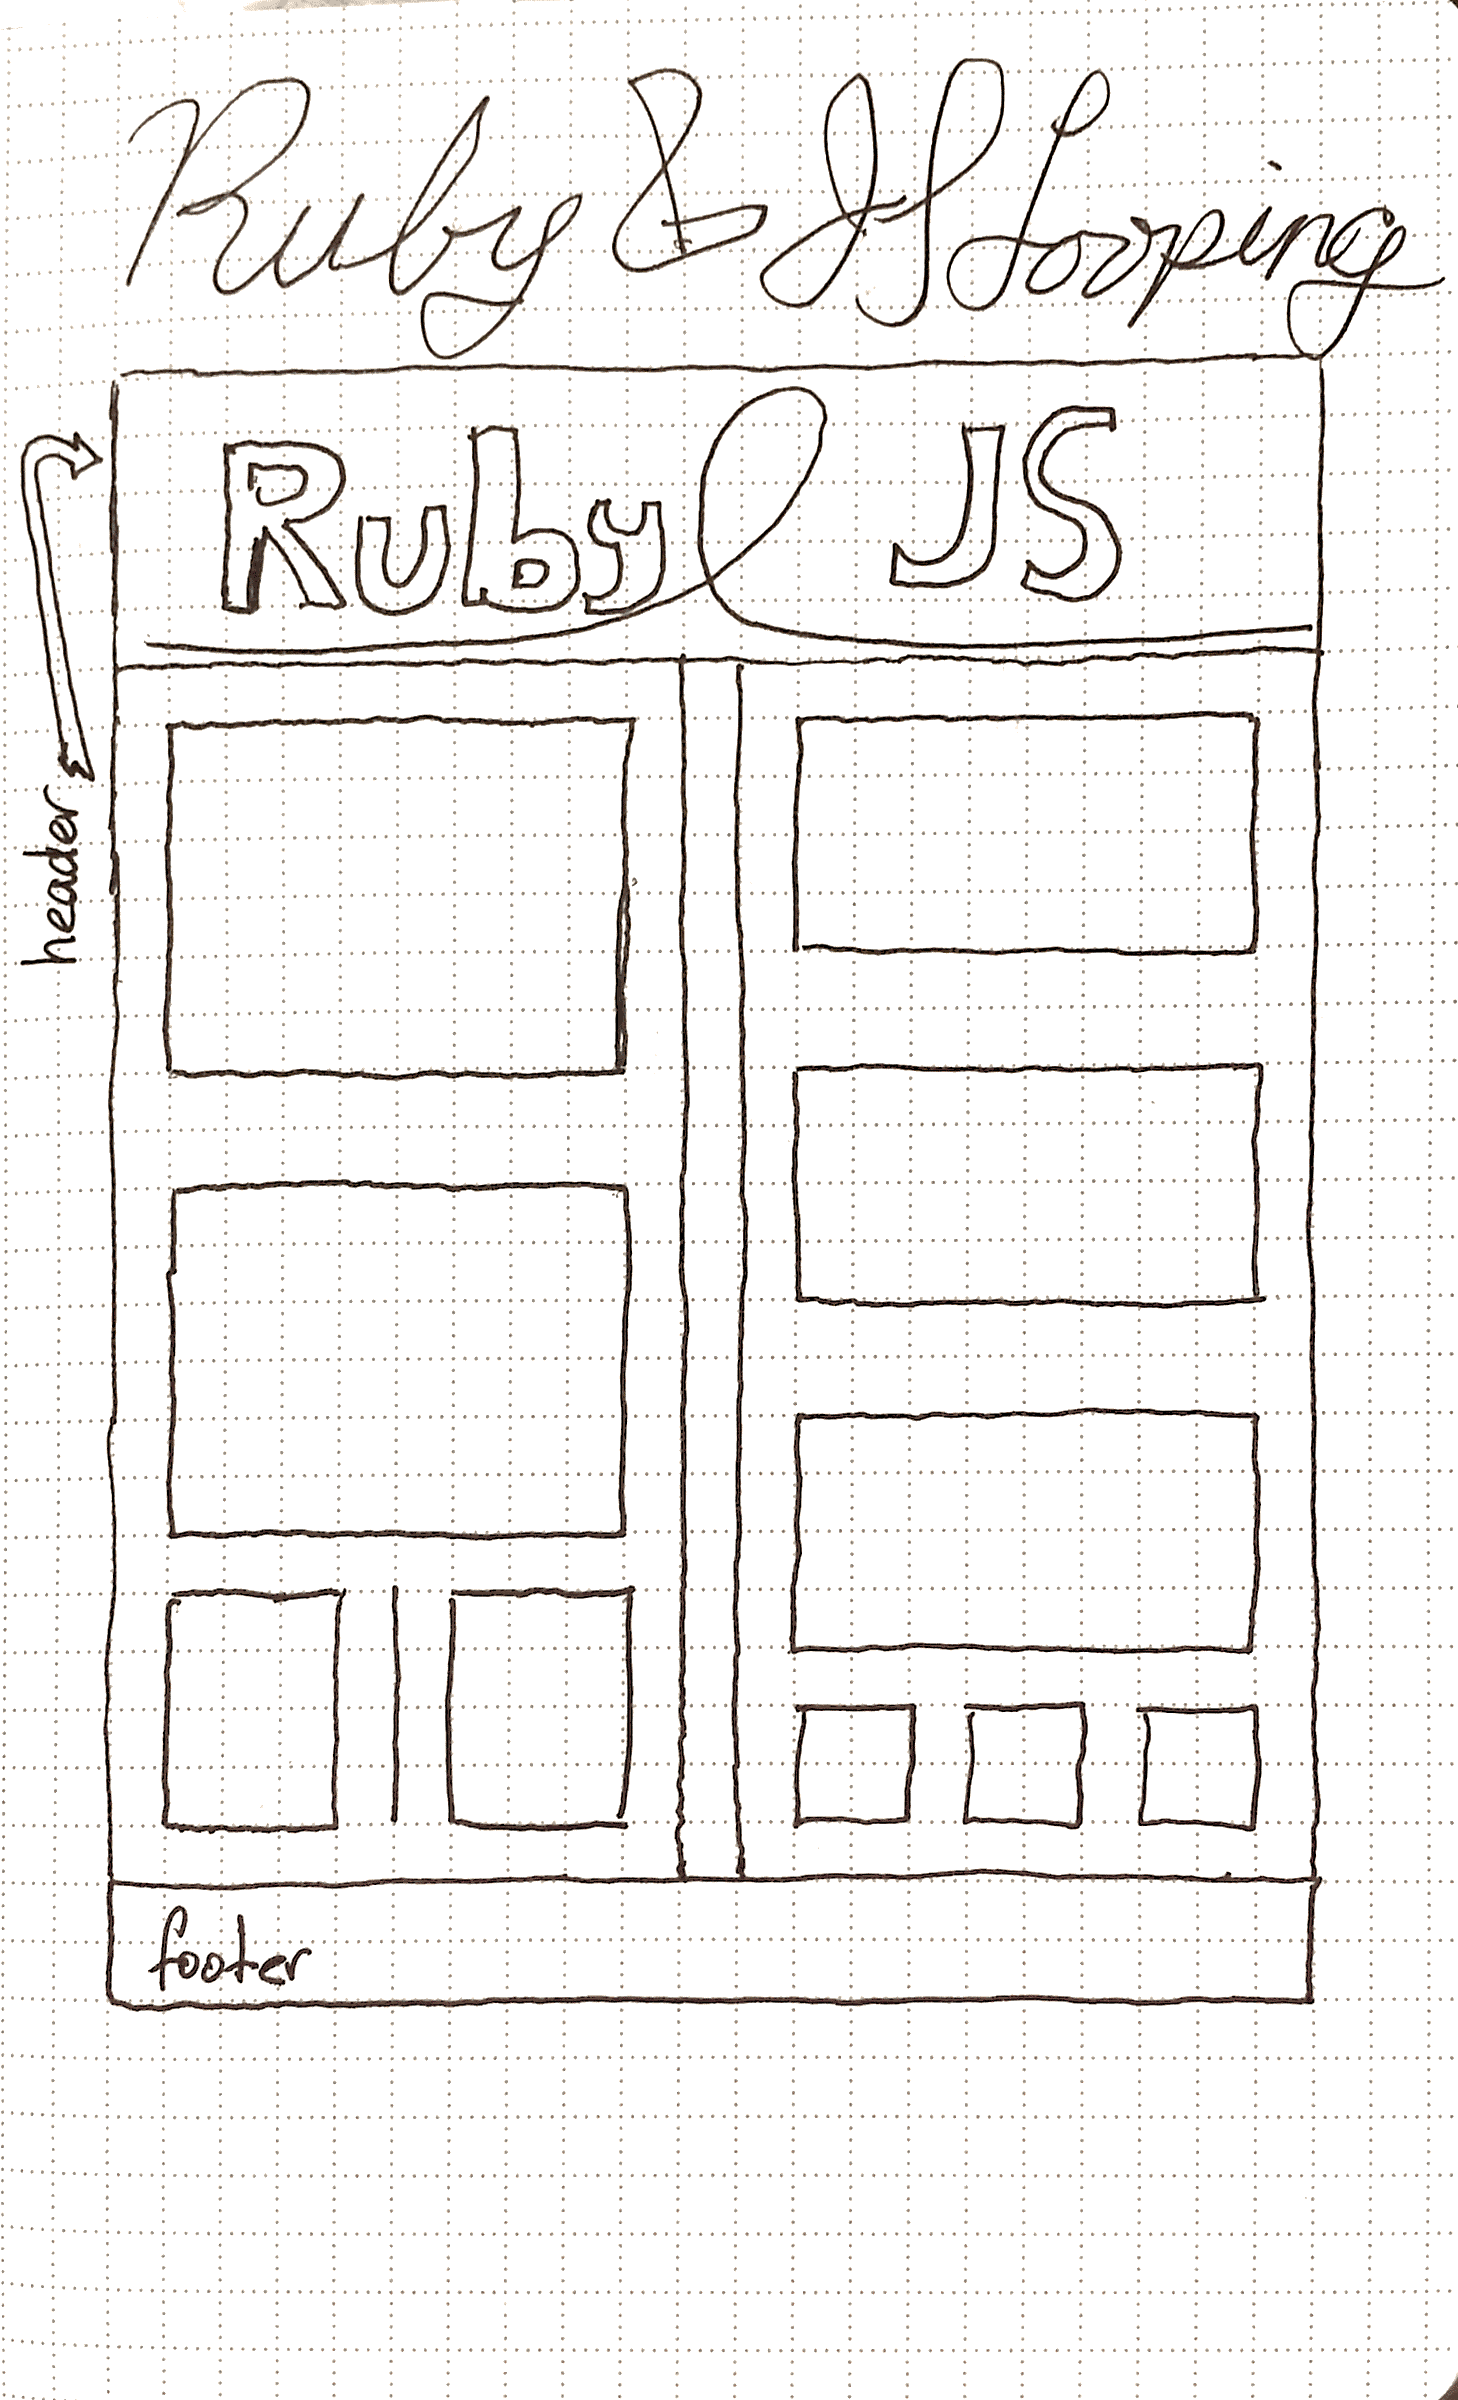 Ruby & JS Looping
Ruby JS
header
footer